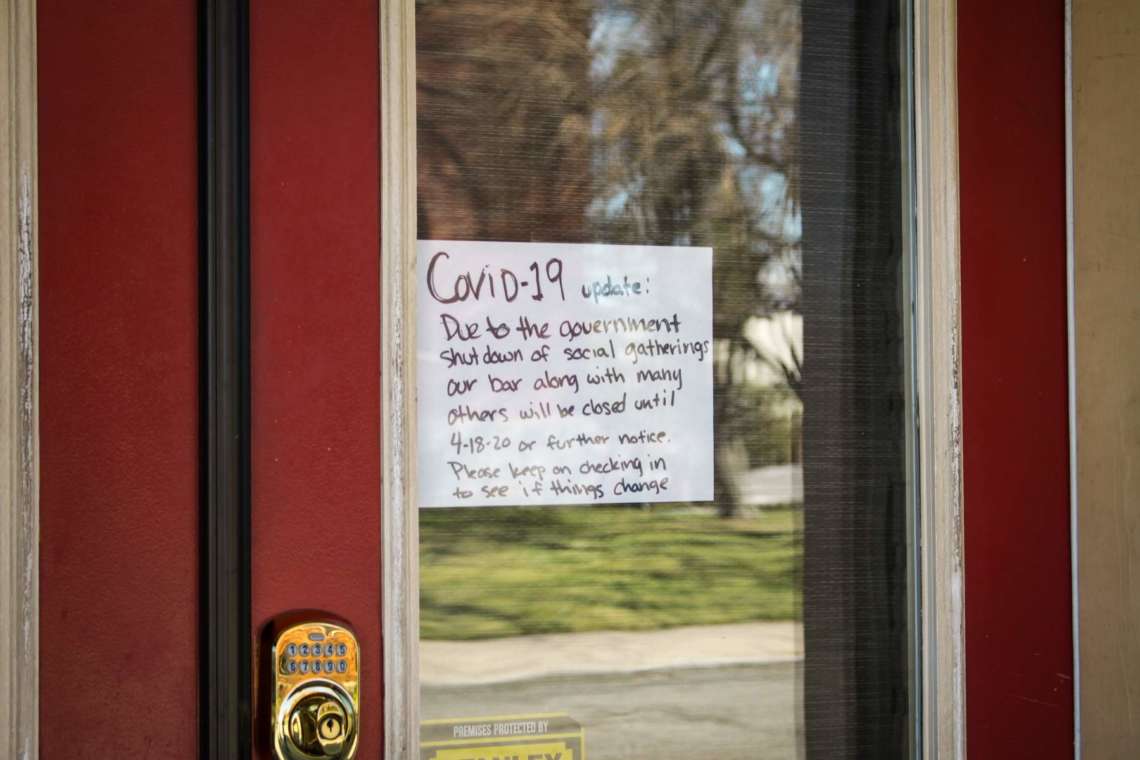 Covid-19 update:
Due to the government
shutdown of social gatherings
our bar along with many
others will be closed until
4-18-20 or further notice.
Please keep on checking in
to see if things change
1 2 3 4 5
6 7 8 9 0
PREMISES PROTECTED BY